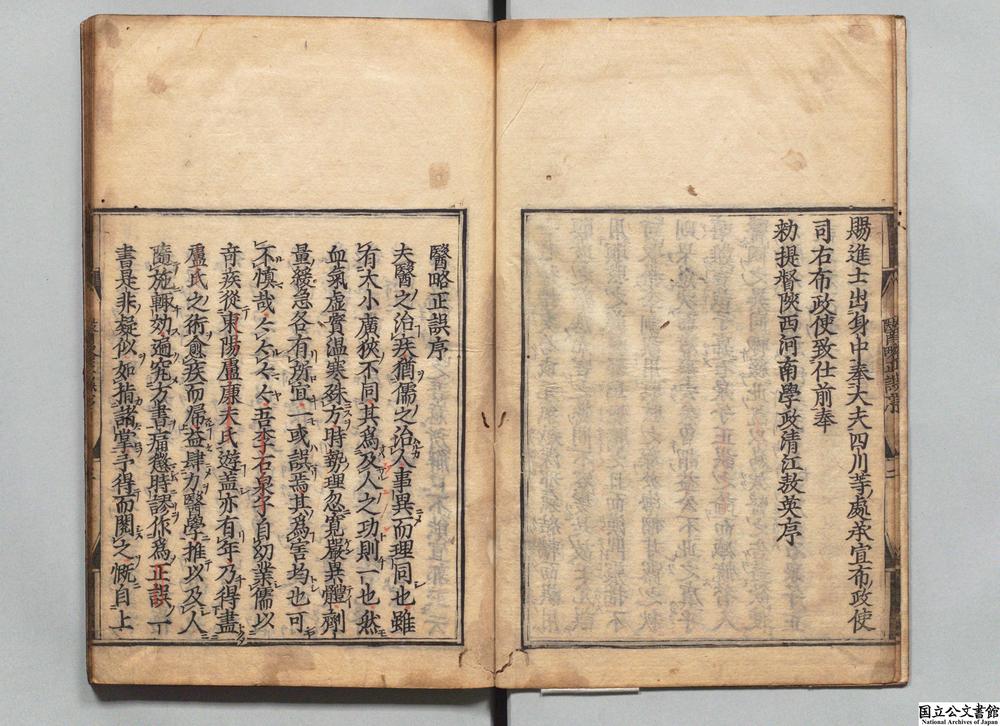 賜進士出身中奉大夫四川等處承宣布政使
司右布政使致仕前奉
勑提督陝西河南學政清江敖英序
醫略正誤序
夫醫之治疾猶儒之治人事異而理同也雖
有大小廣狹不同其為及人之功則一也然
血氣虛實温寒殊方時勢理忽寬嚴異體劑
量緩急各有所宜一或誤焉其為害均也可
不慎哉仝仝仝仝吾李石泉子自幼業儒以
竒疾從東陽盧康夫氏遊盖亦有年乃得盡
盧氏之術愈疾而歸益肆力醫學推以及人
隨施輙効遍究方書痛懲時謬作為正誤一
書是非疑似如指諸掌予得而閱之慨自上
国立公文書館
National Archives of Japan